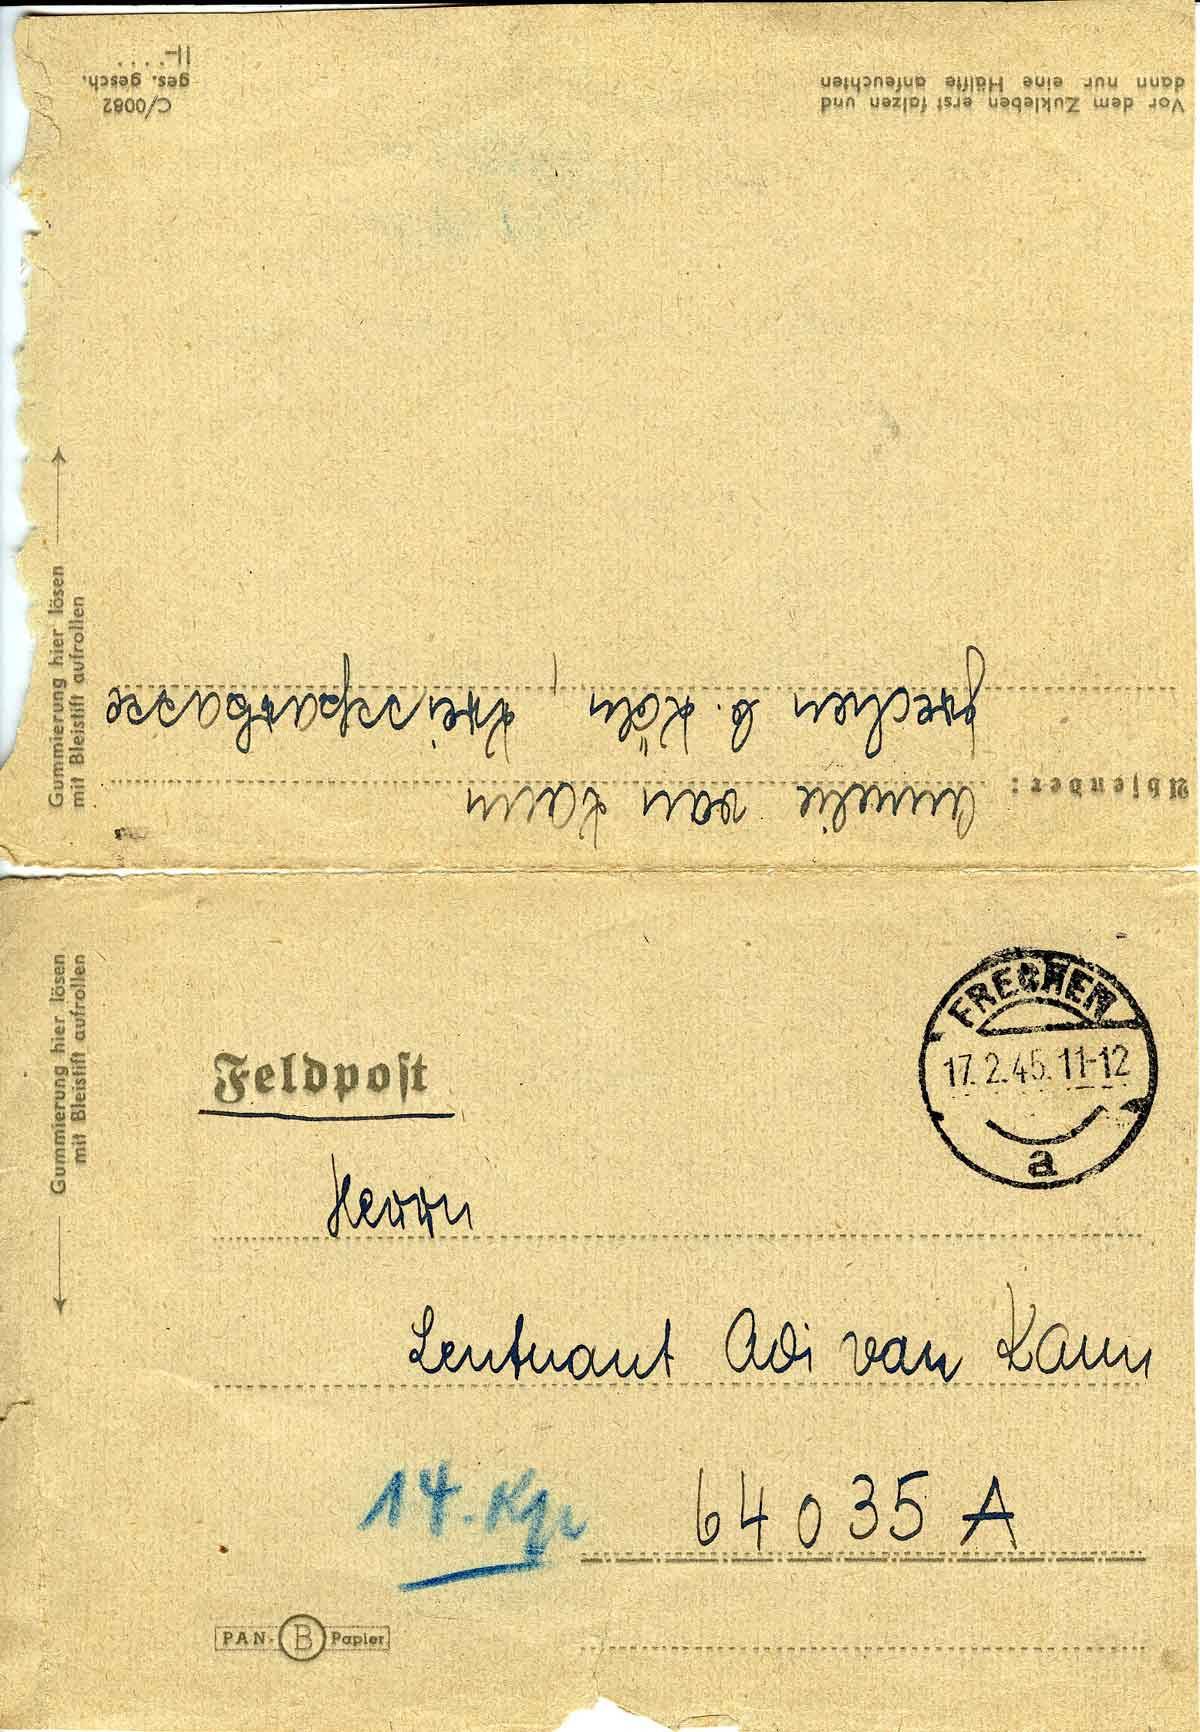 Vor dem Zukleben erst falzen und
dann nur eine Hälfte anfeuchten
C/0082
ges. gesch.
Gummierung hier lösen
mit Bleistift aufrollen
Absender:
Annelie van Kann
Frechen b. Köln, Kreissparkasse
Gummierung hier lösen
mit Bleistift aufrollen
FRECHEN
17.2.45.11-12
a
Feldpost
Herrn
Leutnant Adi van Kann
14. Kp.
64035 A
PAN-B Papier